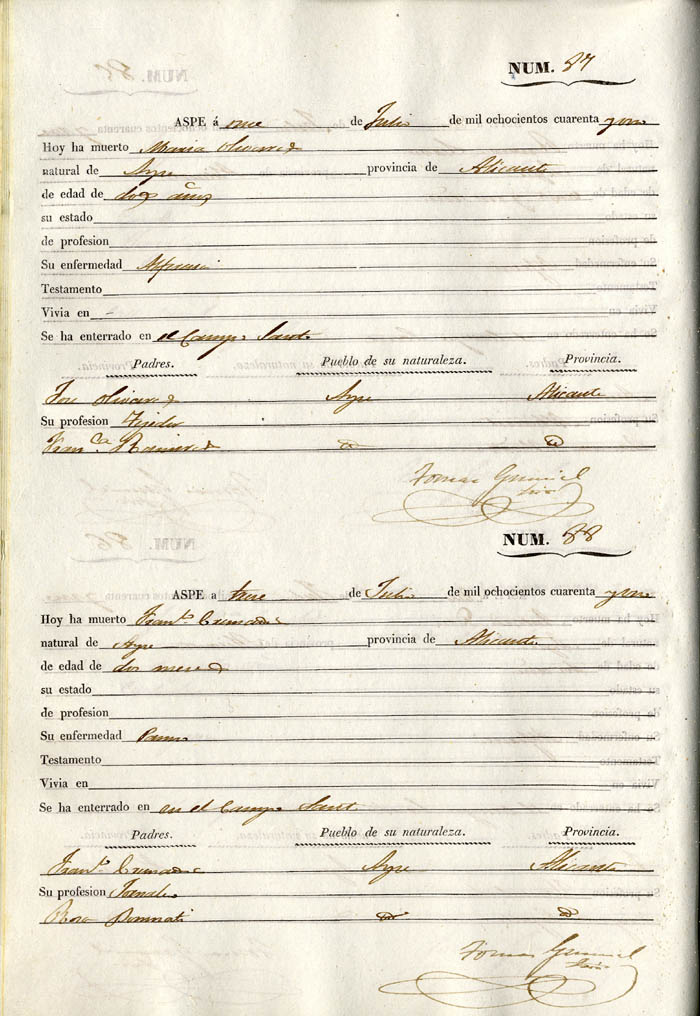 NUM. 87
ASPE á once de Julio de mil ochocientos cuarenta y uno
Hoy ha muerto Maria Olivares
natural de Aspe provincia de Alicante
de edad de dos años
su estado
de profesion
Su enfermedad
Testamento
Vivia en
Se ha enterrado en el Campo Santo
Padres. Pueblo de su naturaleza. Provincia.
Jose Olivares Aspe Alicante
Su profesion Tejedor
Fran.ca Ramires
Tomas
NUM. 88
ASPE a trece de Julio de mil ochocientos cuarenta y uno
Hoy ha muerto Fran.co
natural de Aspe provincia de Alicante
de edad de dos meses
su estado
de profesion
Su enfermedad
Testamento
Vivia en
Se ha enterrado en en el Campo Santo
Padres. Pueblo de su naturaleza. Provincia.
Fran.co Aspe Alicante
Su profesion
Rosa
Tomas